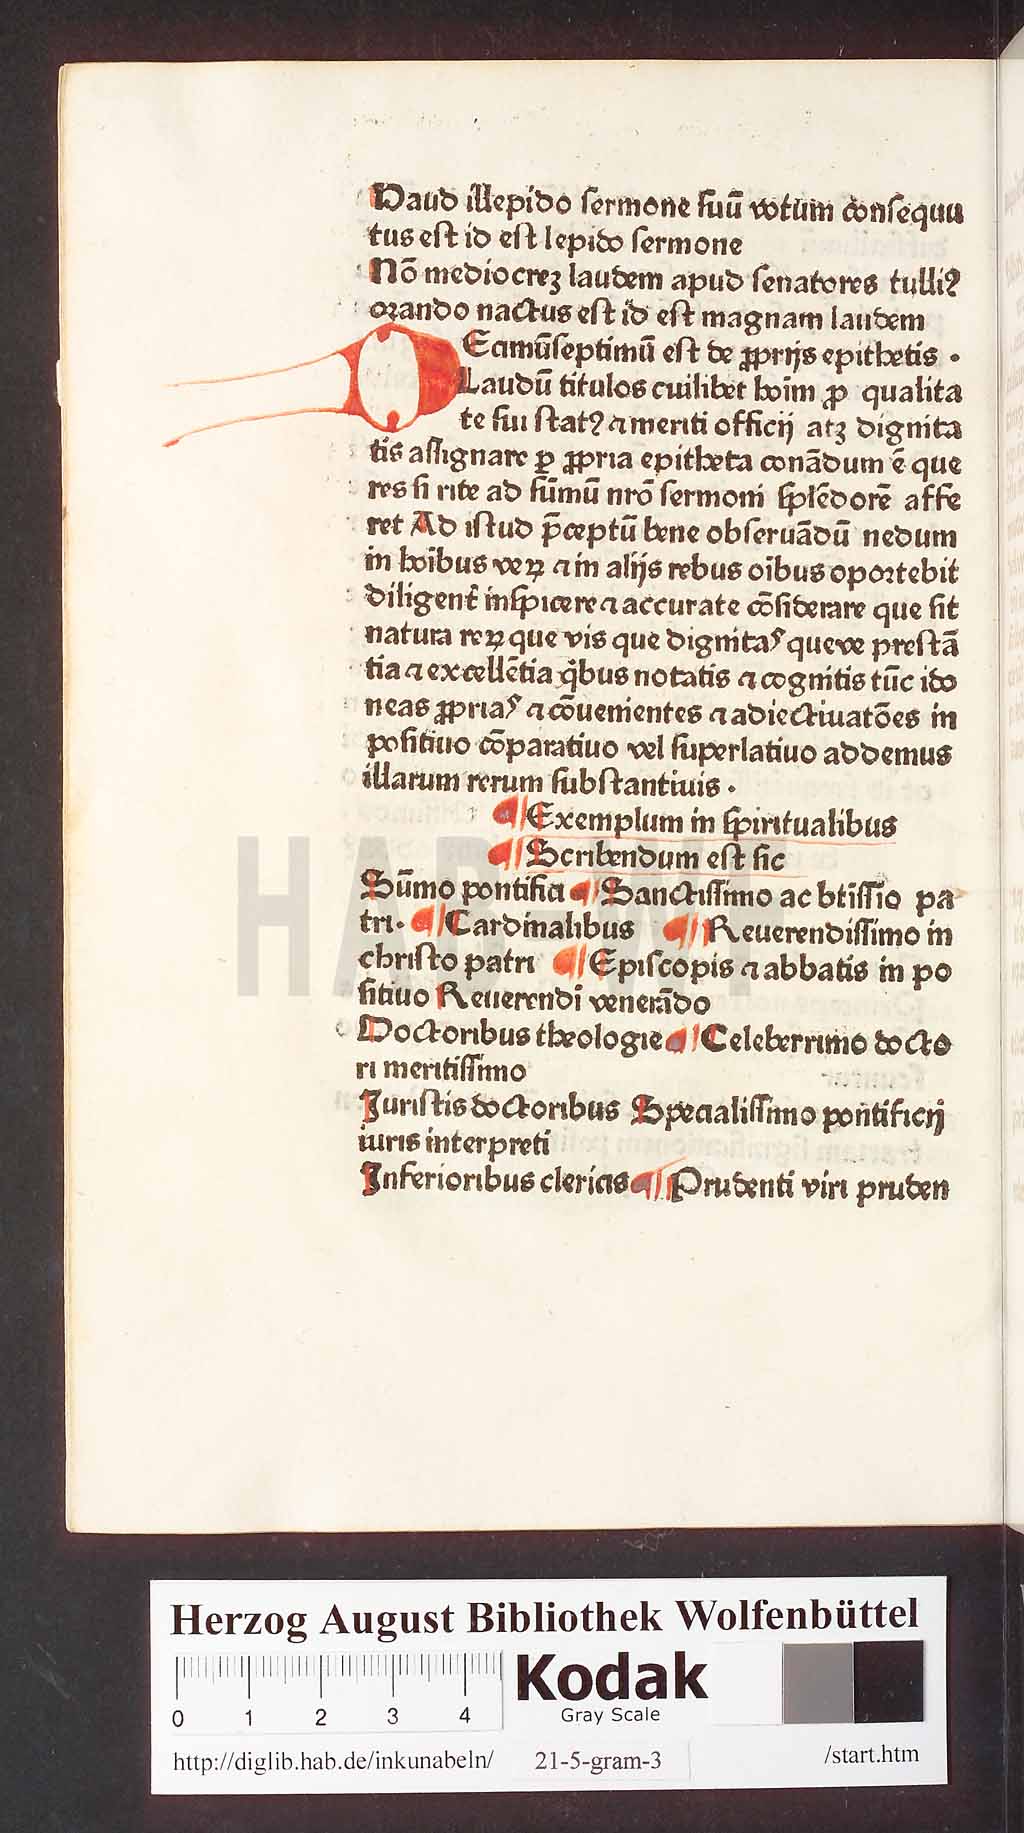 Haud illepido sermone suū votum consequu
tus est id est lepido sermone
Nō mediocreȝ laudem apud senatores tulliꝰ
orando nactus est id est magnam laudem
DEcimūseptimū est de ꝓprijs epithetis .
Laudū titulos cuilibet hoīm ꝓ qualita
te sui statꝰ ⁊ meriti officij atꝫ dignita
tis assignare ꝑ ꝓpria epitheta conādum ē que
res si rite ad sūmū nrō sermoni splēdorē affe
ret Ad istud p̄ceptū bene obseruādū nedum
in hoībus veꝝ ⁊ in alijs rebus oībus oportebit
diligent̄ inspicere ⁊ accurate cōsiderare que sit
natura reꝝ que vis que dignitaˢ queve prestā
tia ⁊ excellētia q̄bus notatis ⁊ cognitis tūc ido
neas ꝓpriaˢ ⁊ cōuenientes ⁊ adiectiuatōes in
positiuo cōparatiuo vel superlatiuo addemus
illarum rerum substantiuis .
¶ Exemplum in spiritualibus
¶ Scribendum est sic
Sūmo pontifici ¶ Sanctissimo ac btīssīo pa
tri. ¶ Cardinalibus ¶ Reuerendissimo in
christo patri ¶ Episcopis ⁊ abbatis in po
sitiuo Reuerendi venerādo
Doctoribus theologie ¶ Celeberrimo docto
ri meritissimo
Juristis doctoribus Specialissimo pontificij
iuris interpreti
Inferioribus clericis ¶ Prudenti viri pruden
HAB-WF
Herzog August Bibliothek Wolfenbüttel
0 1 2 3 4
Kodak
Gray Scale
http://diglib.hab.de/inkunabeln/ 21-5-gram-3 /start.htm